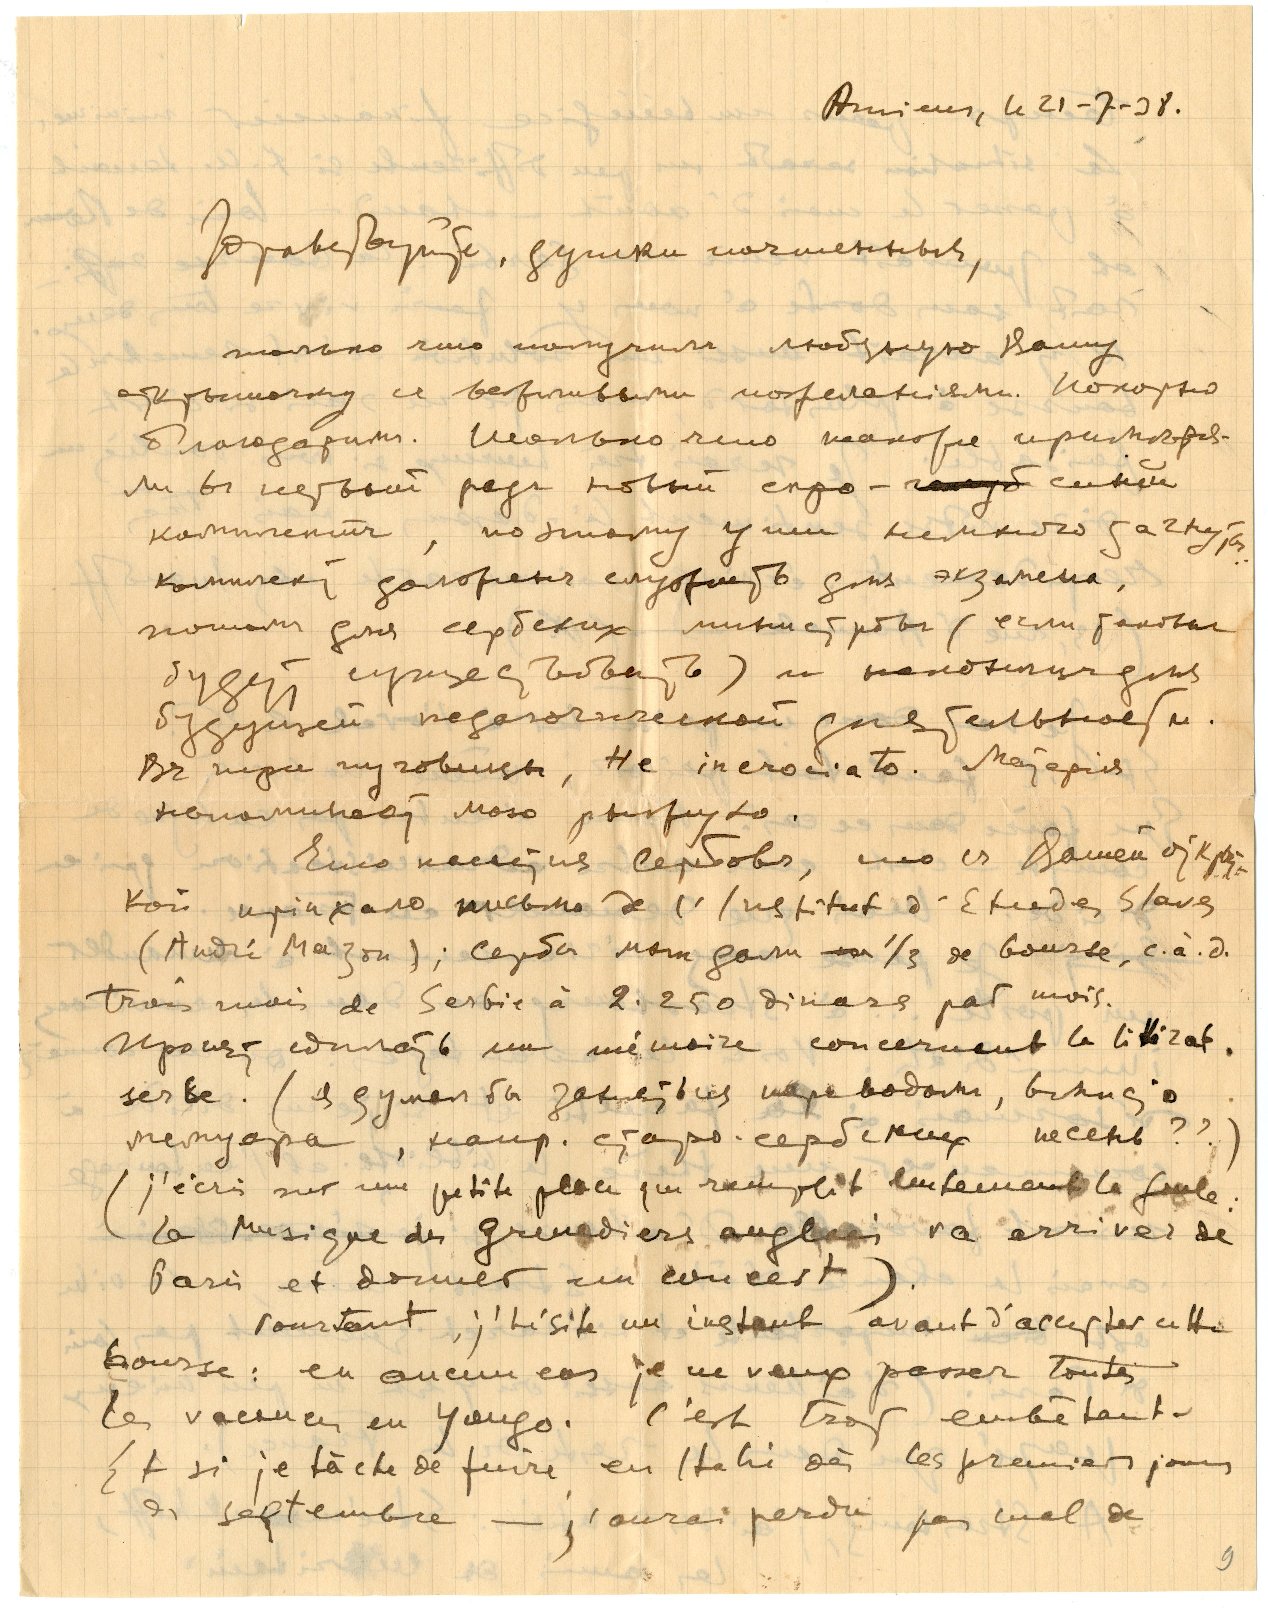 Amiens, le 21-7-38.
Здравствуйте, душки почтенныя,
только что получилъ любезную Вашу
открыточку съ вежливыми пожеланіями. Покорно
благодаримъ. Только что также примѣря-
ли въ первый разъ новый серо- синій
комплектъ, поэтому уши немного
комплект долженъ служить для экзамена,
потомъ для сербскихъ министровъ (если таковые
будут существовать) и наконецъ для
будущей педагогической дѣятельности.
Въ три пуговицы, не incrociato. Матерія
напоминает мою рыжую.
Что касается Сербовъ, то съ Вашей открыт-
кой пріѣхало письмо de l'Institut d'Etudes Slaves
(André Mazon); Сербы мнѣ дали 1/3 de bourse, c.à.d.
trois mois de Serbie à 2.250 dinars par mois.
Просят сдѣлать un mémoire concernant la littérat.
serbe. (я думалъ бы заняться переводомъ, вмѣсто
мемуара, напр. старо-сербскихъ песенъ??)
(j'écris sur une petite place que remplit lentement la foule:
la Musique des Grenadiers anglais va arriver de
Paris et donner un concert).
Pourtant, j'hésite un instant avant d'accepter cette
bourse: en aucun cas je ne veux passer toutes
les vacances en Yougo. C'est trop embêtant.
Et si je tâche de fuire en Italie dès les premiers jours
de septembre — j'aurai perdu pas mal de
9